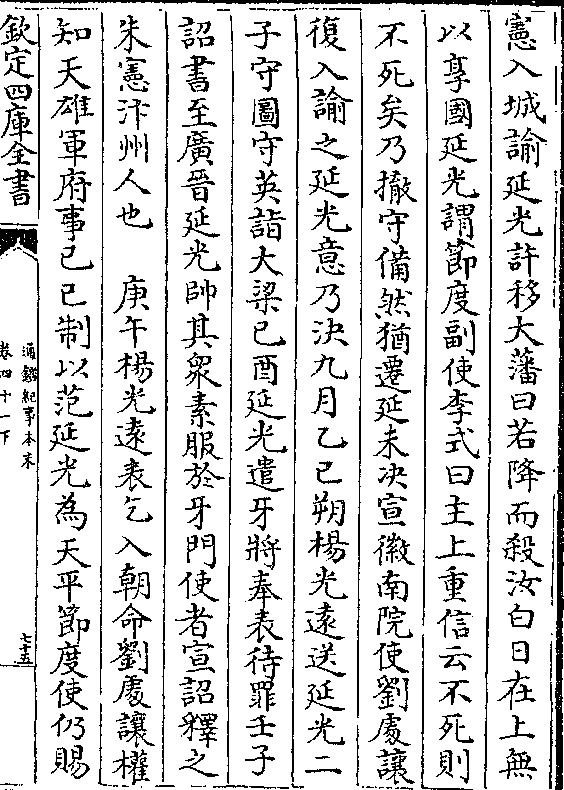 憲入城諭延光許移大藩曰若降而殺汝白日在上無
以享國延光謂節度副使李式曰主上重信云不死則
不死矣乃撤守備然猶遷延未決宣徽南院使劉處讓
復入諭之延光意乃決九月乙巳朔楊光遠送延光二
子守圖守英詣大梁己酉延光遣牙將奉表待罪壬子
詔書至廣晉延光帥其衆素服於牙門使者宣詔釋之
朱憲汴州人也　庚午楊光遠表乞入朝命劉處讓權
知天雄軍府事己巳制以范延光為天平節度使仍賜
欽定四庫全書
通鑑紀事本末
卷四十一下
七十五